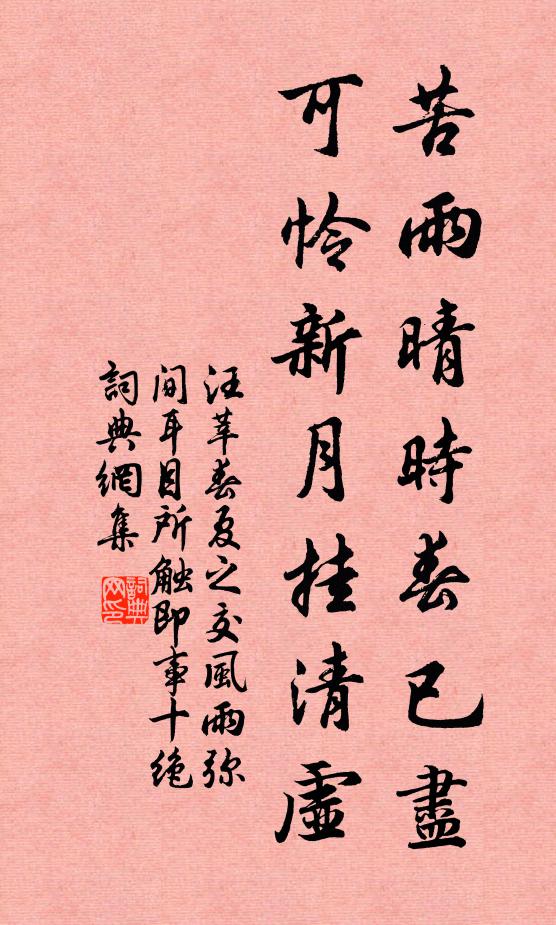 苦雨晴時春已盡
可憐新月挂清虛
汪莘春夏之交風雨弥
間耳目所触即事十绝
詞典網集
詞典網印